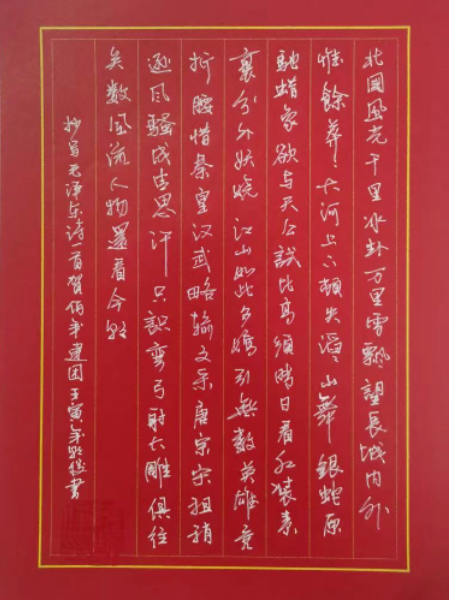 北國風光千里冰封万里雪飘望長城内外
惟餘莽々大河上下頓失滔々山舞銀蛇原
馳蜡象欲与天公試比高須晴日看红装素
裹分外妖娆江山如此多嬌引無数英雄竞
折腰惜秦皇汉武略输文采唐宗宋祖稍
逊风騷成吉思汗只識弯弓射大雕俱往
矣数风流人物還看今朝
抄写毛泽东诗一首贺佰年建国壬寅年書